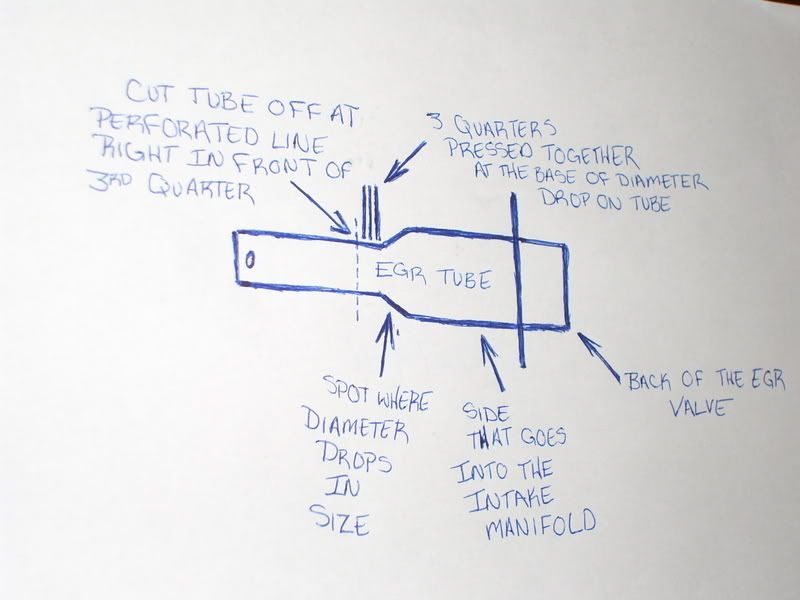 CUT TUBE OFF AT
PERFORATED LINE
RIGHT IN FRONT OF
3RD QUARTER
3 QUARTERS
PRESSED TOGETHER
AT THE BASE OF DIAMETER
DROP ON TUBE
EGR TUBE
BACK OF THE EGR
VALVE
SPOT WHERE
DIAMETER
DROPS
IN
SIZE
SIDE
THAT GOES
INTO THE
INTAKE
MANIFOLD